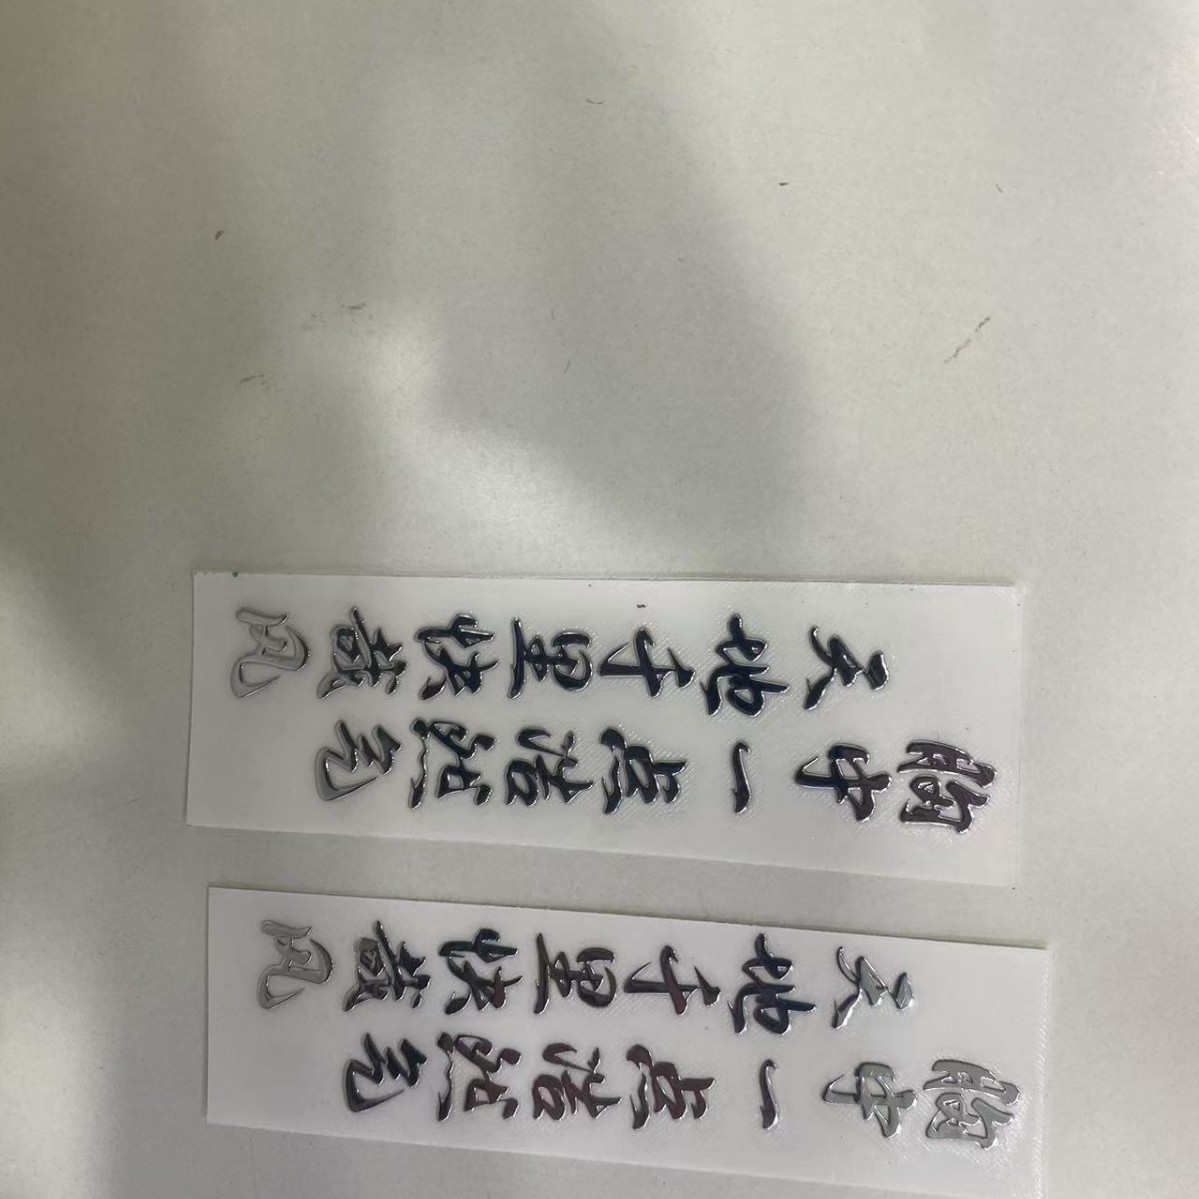 胸中一点浩然气
天地千里快哉风
胸中一点浩然气
天地千里快哉风